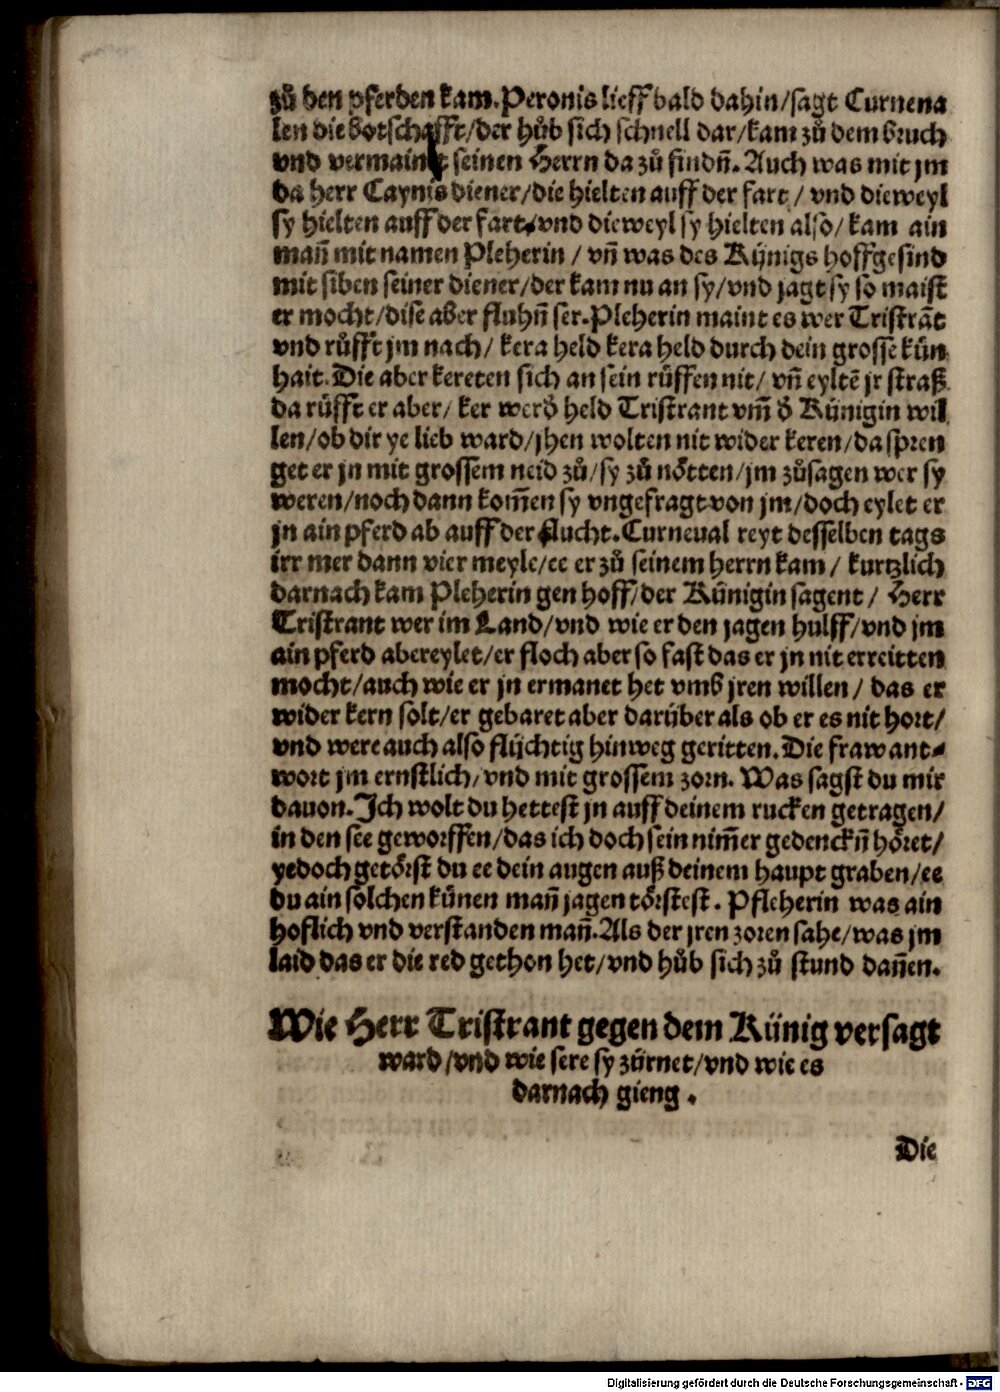 zů den pferden kam. Peronis lieff bald dahin/sagt Curnena
len die botschafft/der hůb sich schnell dar/kam zů dem bruch
vnd vermaint seinen Herrn da zů findñ. Auch was mit jm
da herr Caynis diener/die hielten auff der fart/ vnd dieweyl
sy hielten auff der fart/vnd dieweyl sy hielten also/ kam ain
mañ mit namen Pleherin / vñ was des Künigs hoffgesind
mit siben seiner diener/der kam nu an sy/vnd jagt sy so maist
er mocht/dise aber fluhñ ser. Pleherin maint es wer Tristrāt
vnd růfft jm nach/ kera held kera held durch dein grosse kün
hait. Die aber kereten sich an sein růffen nit/ vñ eyltē jr straß
da růfft er aber/ ker werd held Tristrant vm̄ d Künigin wil
len/ob dir ye lieb ward/jhen wolten nit wider keren/da spren
get er jn mit grossem neid zů/sy zů nötten/jm zůsagen wer sy
weren/noch dann kom̄en sy vngefragt von jm/doch eylet er
jn ain pferd ab auff der flucht. Curneual reyt desselben tags
irr mer dann vier meyle/ee er zů seinem herrn kam/ kurtzlich
darnach kam Pleherin gen hoff/der Künigin sagent/ Herr
Tristrant wer im Land/vnd wie er den jagen hulff/vnd jm
ain pferd abereylet/er floch aber so fast das er jn nit erreitten
mocht/auch wie er jn ermanet het vmb jren willen/ das er
wider kern solt/er gebaret aber darüber als ob er es nit hort/
vnd were auch also flüchtig hinweg geritten. Die fraw ant-
wort jm ernstlich/vnd mit grossem zorn. Was sagst du mir
dauon. Ich wolt du hettest jn auff deinem rucken getragen/
in den see geworffen/das ich doch sein nim̄er gedenckñ höret/
yedoch getörst du ee dein augen auß deinem haupt graben/ee
du ain solchen künen mañ jagen törstest. Pfleherin was ain
hoflich vnd verstanden mañ. Als der jren zoren sahe/was jm
laid das er die red gethon het/vnd hůb sich zů stund dañen.
Wie Herr Tristrant gegen dem Künig versagt
ward/vnd wie sere sy zürnet/vnd wie es
darnach gieng.
Die
Digitalisierung gefördert durch die Deutsche Forschungsgemeinschaft - DFG